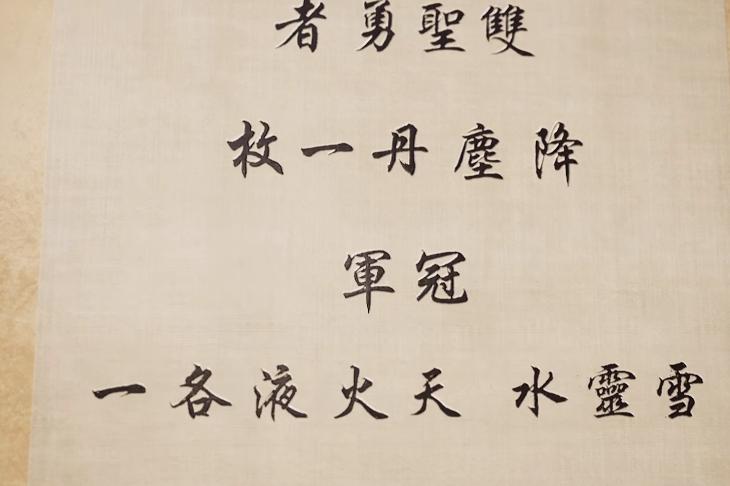 雙聖勇者
降塵丹一枚
冠軍
雪靈水 天火液各一